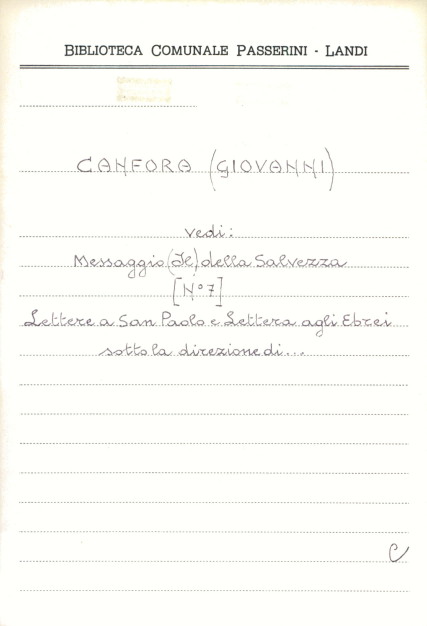 BIBLIOTECA COMUNALE PASSERINI - LANDI
CANFORA (GIOVANNI)
vedi:
Messaggio (Il) della Salvezza
[N° 7]
Lettere a San Paolo e Lettera agli Ebrei
sotto la direzione di...
C